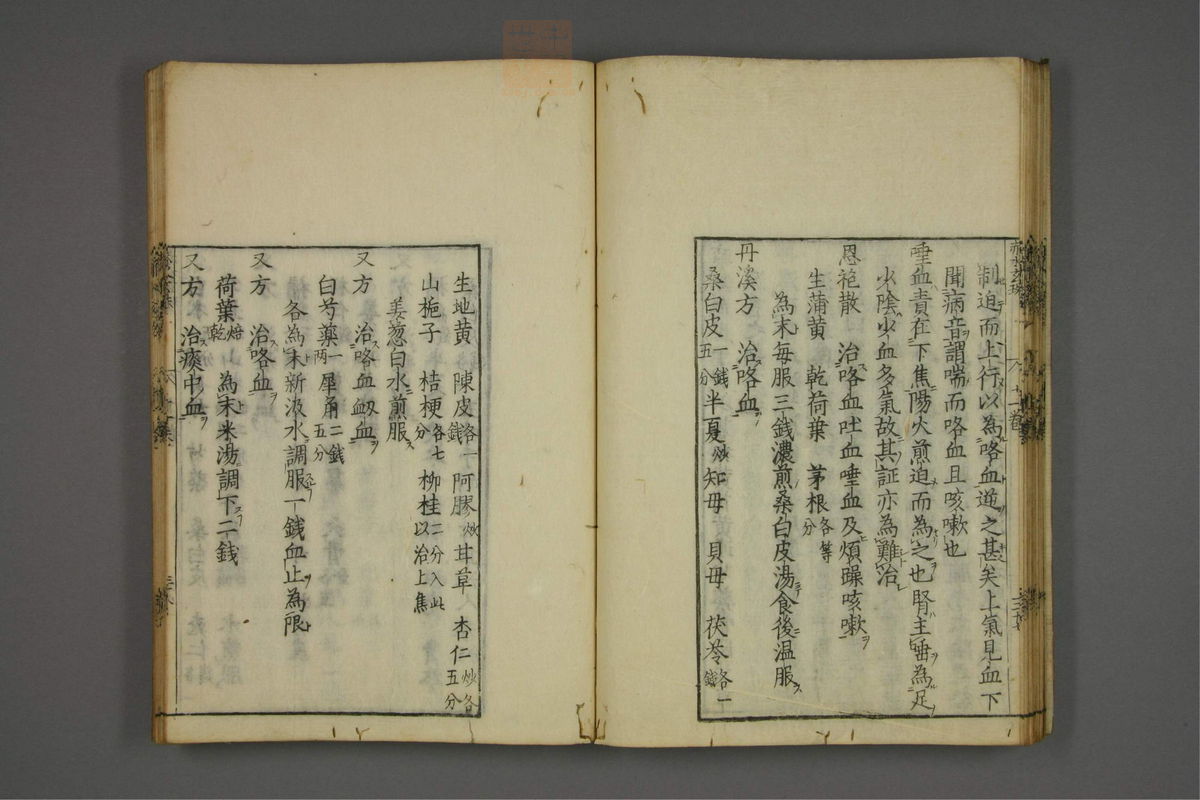 制迫而上行以為咯血逆之甚矣上氣見血下
聞病音謂喘而咯血且咳嗽也
唾血責在下焦陽火煎迫而為之也腎主唾為足
少陰少血多氣故其証亦為難治
恩袍散 治咯血吐血唾血及煩躁咳嗽
生蒲黄 乾荷葉 茅根各等分
為末毎服三銭濃煎桑白皮湯食後温服
丹溪方 治咯血
桑白皮一銭五分 半夏炒 知母 貝母 茯苓各一銭
生地黄 陳皮各一銭 阿膠炒 甘草 杏仁炒各五分
山梔子 桔梗各七分 柳桂二分入此以治上焦
姜葱白水煎服
又方 治咯血衂血
白芍薬一両 犀角二銭五分
各為末新汲水調服一銭血止為限
又方 治咯血
荷葉焙乾 為末米湯調下二銭
又方 治痰中血